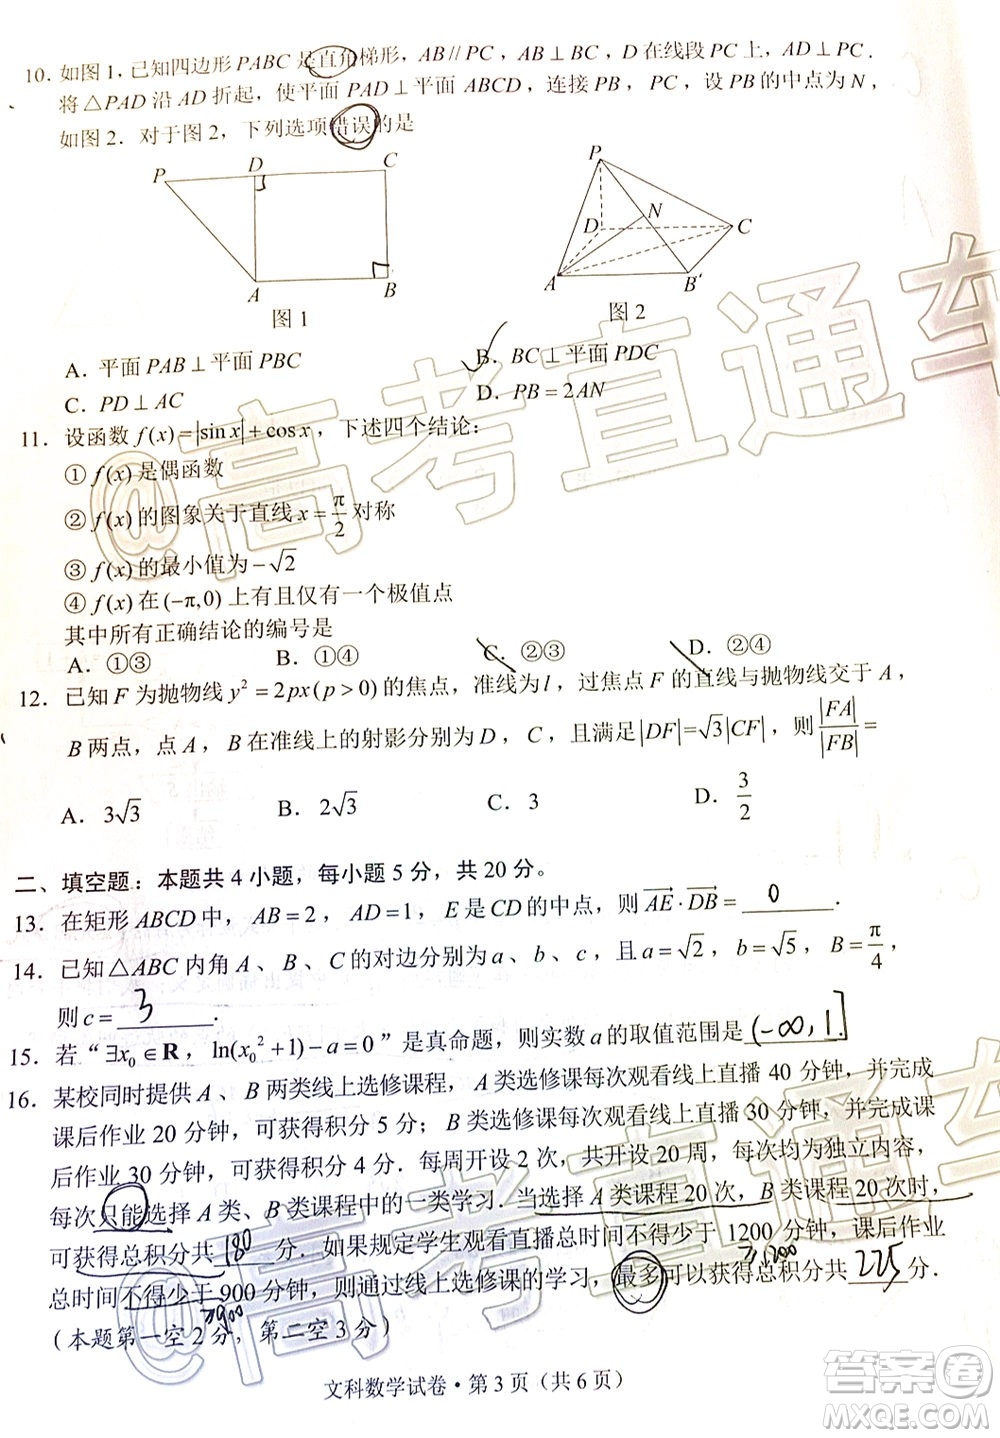 10. 如图 1, 已知四边形 PABC 是直角梯形, AB // PC, AB ⊥ BC, D 在线段 PC 上, AD ⊥ PC.
将 △PAD 沿 AD 折起, 使平面 PAD ⊥ 平面 ABCD, 连接 PB, 设 PB 的中点为 N,
如图 2. 对于图 2, 下列选项错误的是
P D C A B
图 1
P N D C A B
图 2
A. 平面 PAB ⊥ 平面 PBC
B. BC ⊥ 平面 PDC
C. PD ⊥ AC
D. PB = 2AN
11. 设函数 f(x) = |sin x| + cos x, 下述四个结论:
① f(x) 是偶函数
② f(x) 的图象关于直线 x = π/2 对称
③ f(x) 的最小值为 −√2
④ f(x) 在 (−π,0) 上有且仅有一个极值点
其中所有正确结论的编号是
A. ①③ B. ①④ C. ②③ D. ②④
12. 已知 F 为抛物线 y² = 2px(p > 0) 的焦点, 准线为 l, 过焦点 F 的直线与抛物线交于 A,
B 两点, 点 A, B 在准线上的射影分别为 D, C, 且满足 |DF| = √3|CF|, 则 |FA|/|FB| =
A. 3√3 B. 2√3 C. 3 D. 3/2
二、填空题: 本题共 4 小题, 每小题 5 分, 共 20 分。
13. 在矩形 ABCD 中, AB = 2, AD = 1, E 是 CD 的中点, 则 AE · DB = 0 .
14. 已知 △ABC 内角 A、B、C 的对边分别为 a、b、c, 且 a = √2, b = √5, B = π/4,
则 c = 3 .
15. 若 “∃x₀ ∈ R, ln(x₀² + 1) − a = 0” 是真命题, 则实数 a 的取值范围是 (−∞, 1] .
16. 某校同时提供 A、B 两类线上选修课程, A 类选修课每次观看线上直播 40 分钟, 并完成
课后作业 20 分钟, 可获得积分 5 分; B 类选修课每次观看线上直播 30 分钟, 并完成课
后作业 30 分钟, 可获得积分 4 分. 每周开设 2 次, 每次均为独立内容,
每次只能选择 A 类、B 类课程中的一类学习. 当选择 A 类课程 20 次, B 类课程 20 次时,
可获得总积分共 180 分. 如果规定学生观看直播总时间不得少于 1200 分钟, 课后作业
≥1200
总时间不得少于 900 分钟, 则通过线上选修课的学习, 最多可以获得总积分共 225 分.
≥900
(本题第一空 2 分, 第二空 3 分)
文科数学试卷 · 第 3 页 (共 6 页)
@高考直通车
高考直通车
答案圈
MXQE.COM